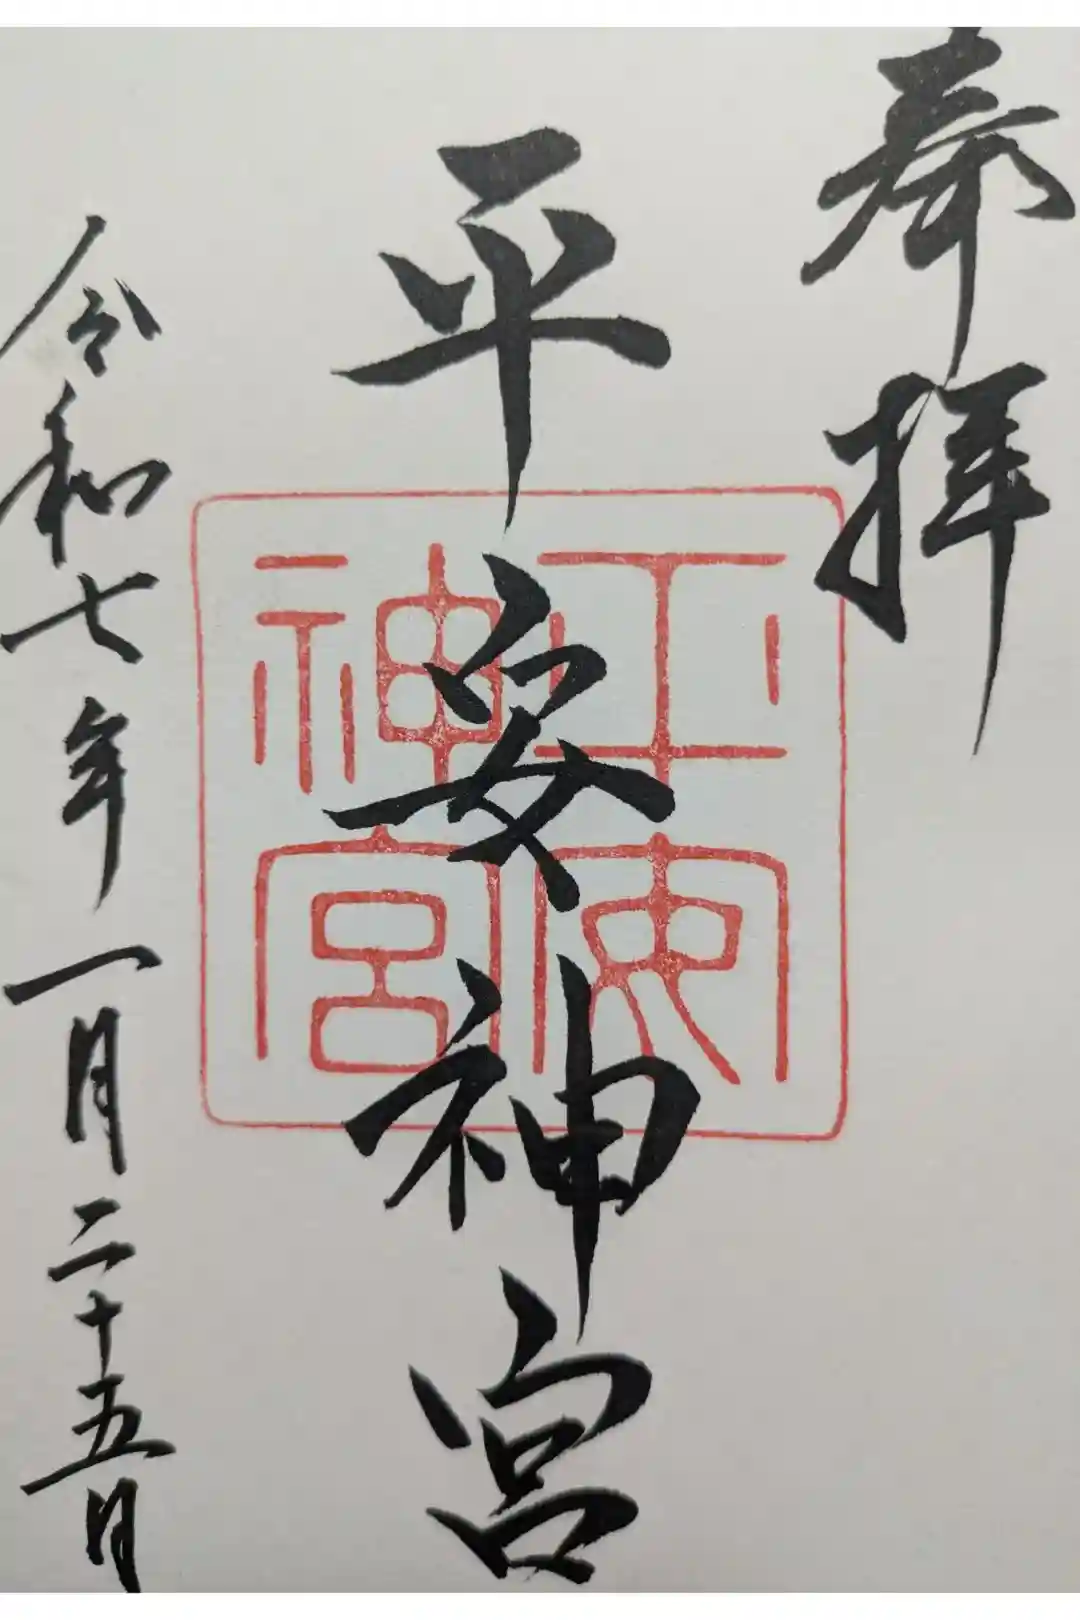 奉拝
平安神宮
平安神宮
令和七年一月二十五日